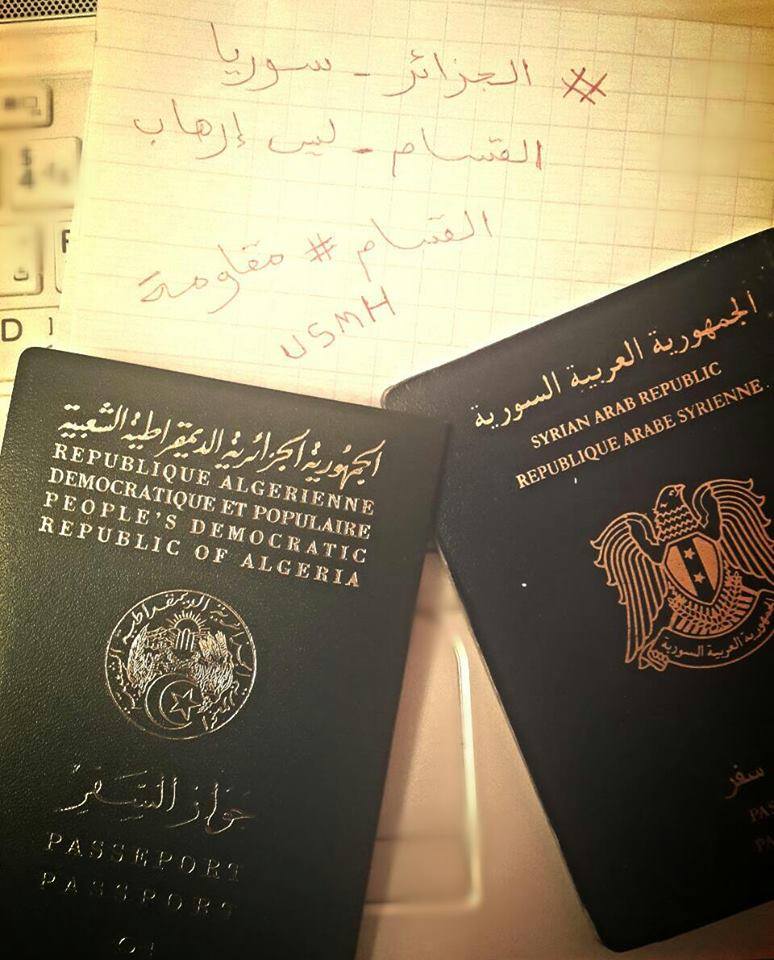 # الجزائر - سوريا
القسام - ليس إرهاب
القسام # مقاومة
USMH
الجمهورية الجزائرية الديمقراطية الشعبية
REPUBLIQUE ALGERIENNE
DEMOCRATIQUE ET POPULAIRE
PEOPLE'S DEMOCRATIC
REPUBLIC OF ALGERIA
جواز السفر
PASSEPORT
PASSPORT
الجمهورية العربية السورية
SYRIAN ARAB REPUBLIC
REPUBLIQUE ARABE SYRIENNE
الجمهورية العربية السورية
سفر
PA
PA
$
4
D